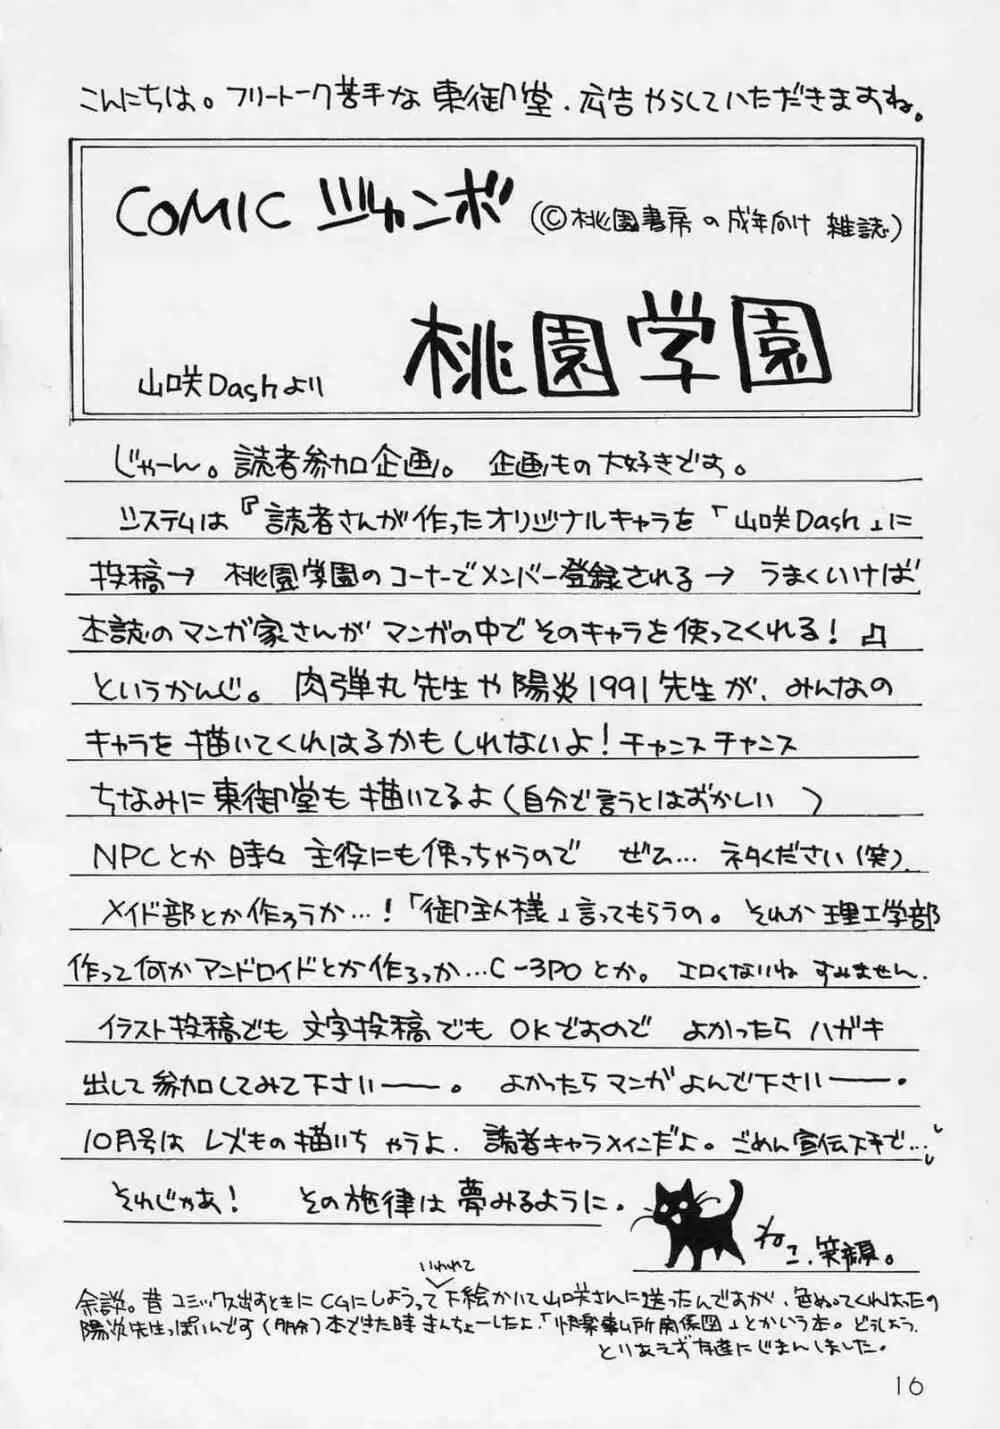 こんにちは。フリートーク苦手な東御堂、広告やらしていただきますね。
COMIC ジャンボ (©桃園書房の成年向け 雑誌)
桃園学園
山咲Dashより
じゃーん。読者参加企画。企画もの大好きです。
システムは『読者さんが作ったオリジナルキャラを「山咲Dash」に
投稿→ 桃園学園のコーナーでメンバー登録される→ うまくいけば
本誌のマンガ家さんがマンガの中でそのキャラを使ってくれる!』
というかんじ。肉弾丸先生や陽炎1991先生が、みんなの
キャラを描いてくれはるかもしれないよ!チャンスチャンス
ちなみに東御堂も描いてるよ(自分で言うとはずかしい )
NPCとか時々主役にも使っちゃうので ぜひ… ネタください(笑).
メイド部とか作ろうか…!「御主人様」言ってもらうの。それか理工学部
作って何かアンドロイドとか作ろっか…C-3POとか。エロくないね すみません.
イラスト投稿でも文字投稿でもOKですので よかったら ハガキ
出して参加してみて下さいーー。よかったらマンガよんで下さいーー.
10月号は レズもの描いちゃうよ. 読者キャラメインだよ。ごめん宣伝下手で…
それじゃあ! その旋律は夢みるように.
ねこ.笑顔。
いわれて
余談。昔 コミックス出すときにCGにしようって下絵かいて山咲さんに送ったんですが、色ぬってくれはったの
陽炎先生っぽいんです(多分)本できた時きんちょーしたよ.「快楽事ム所関係図」とかいう本。どうしよう.
とりあえず友達にじまんしました.
16